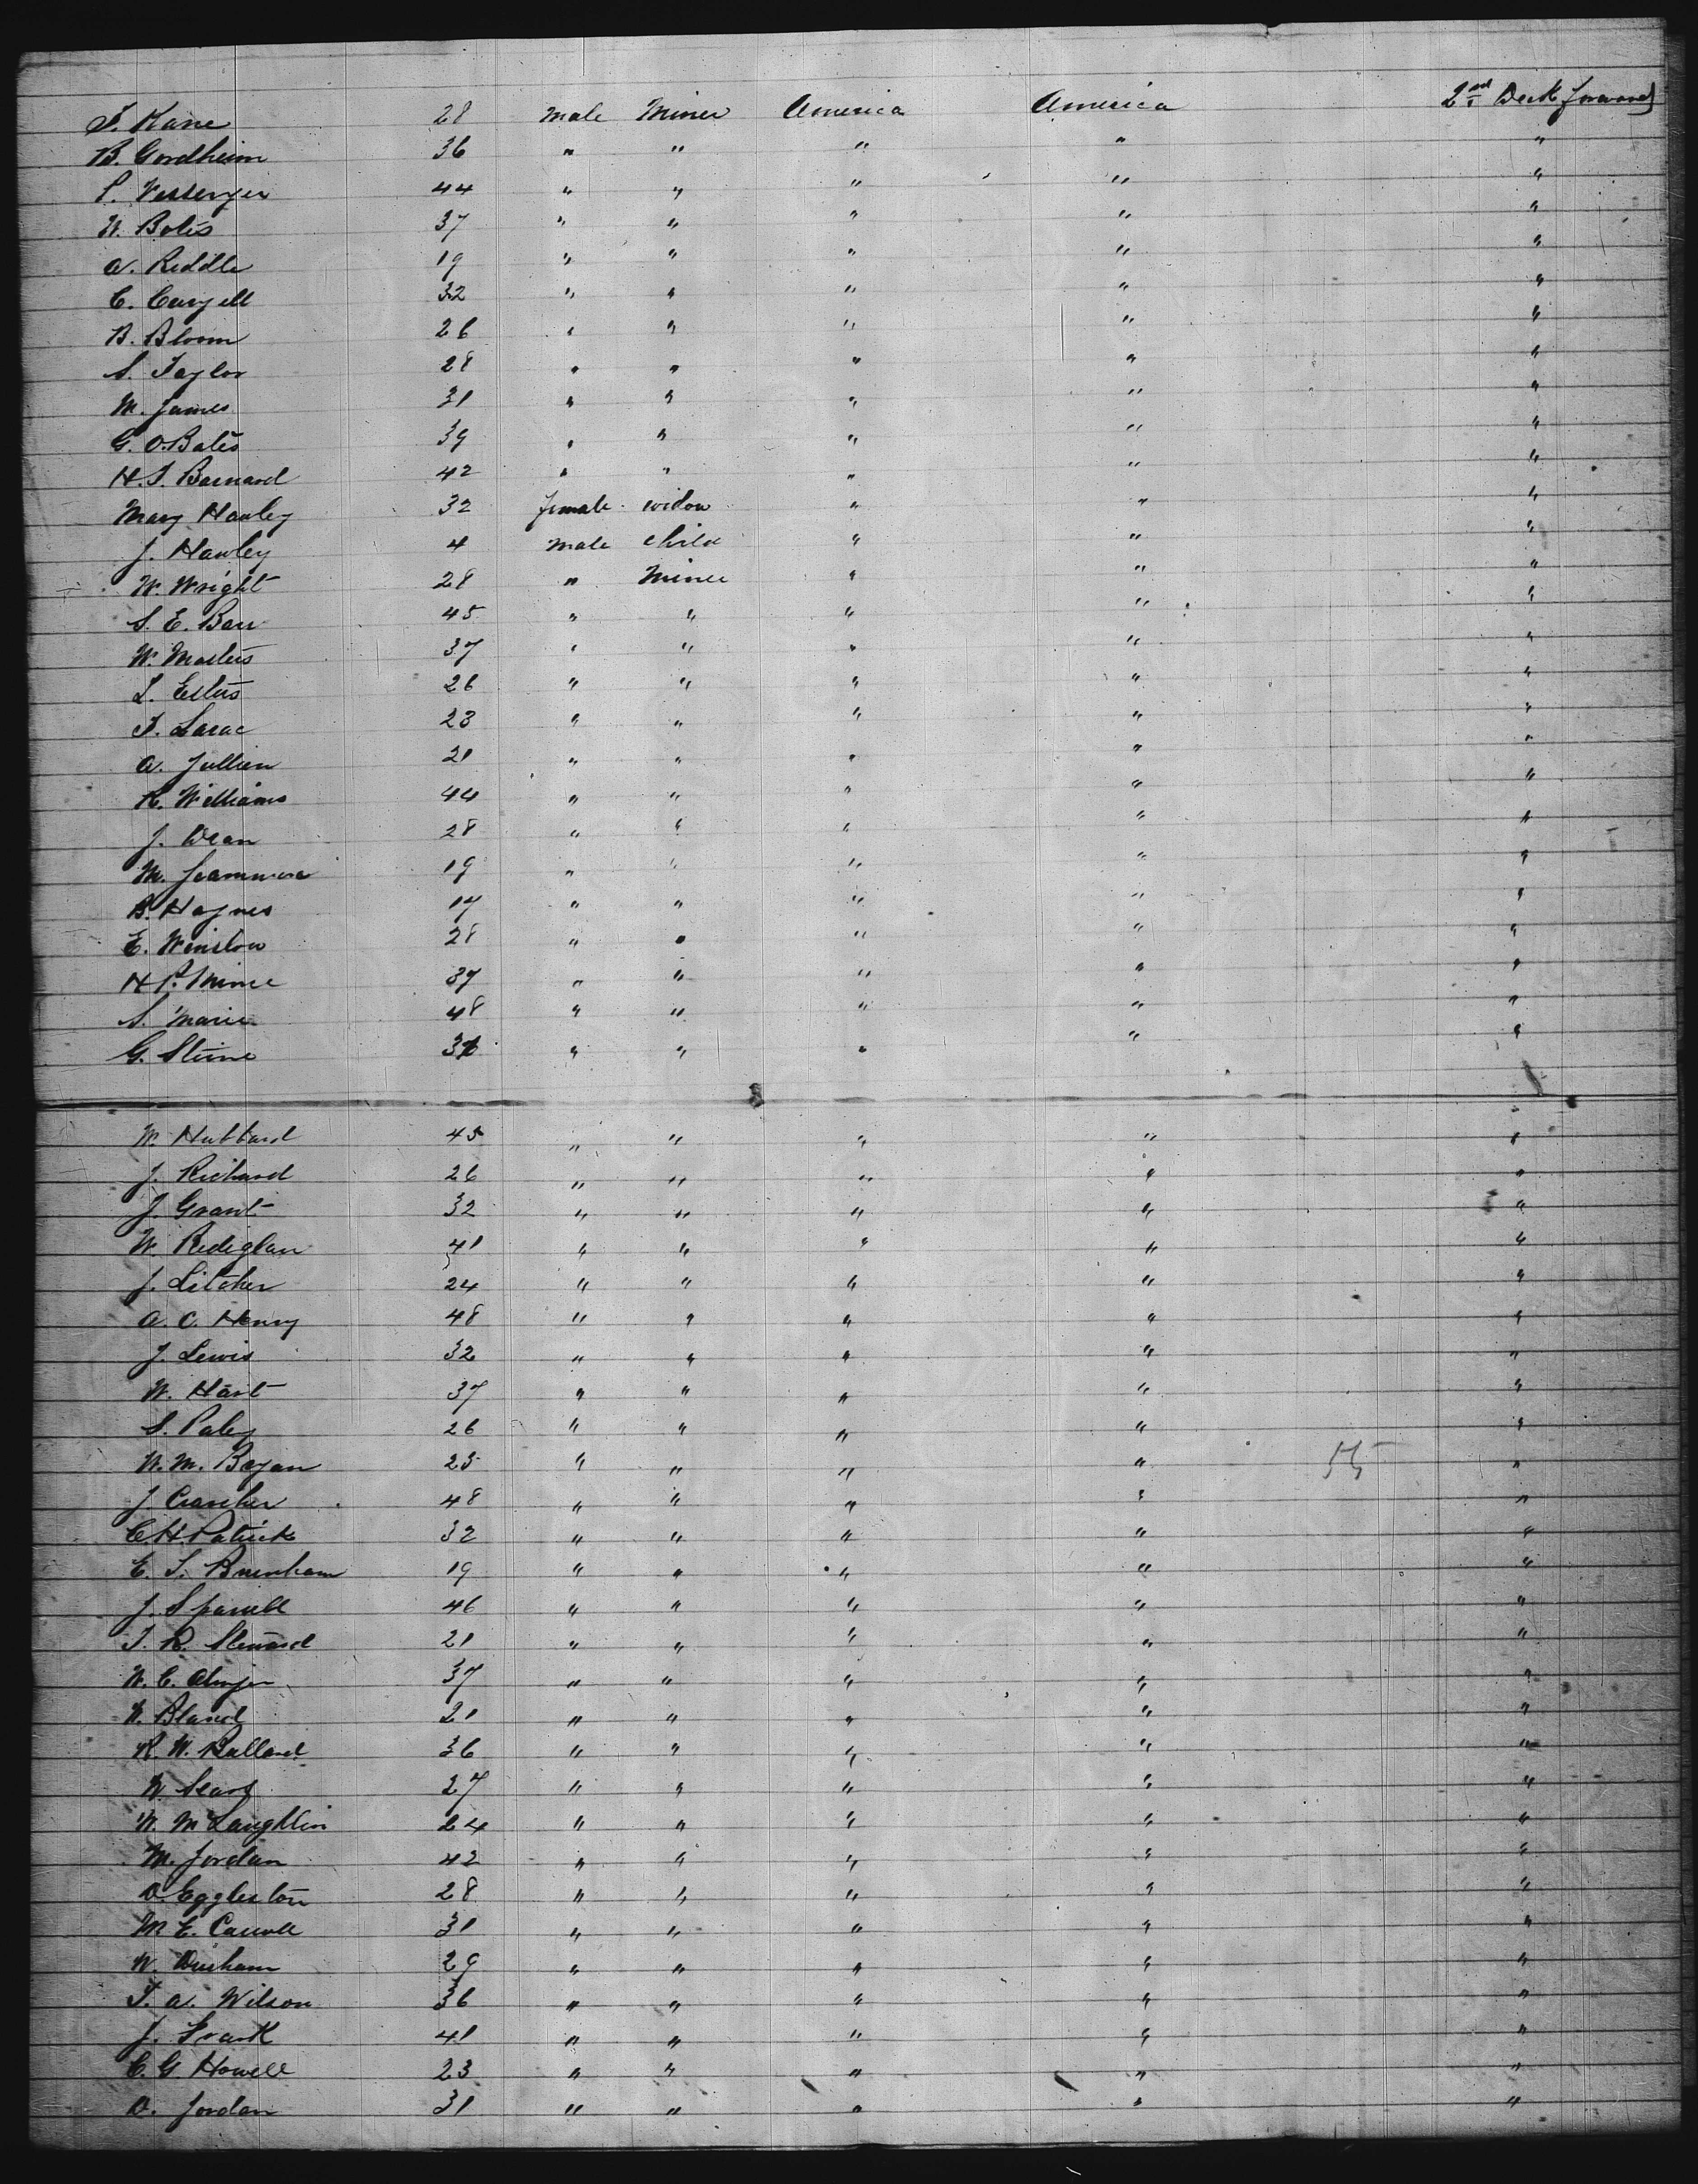 T. Kane 28 male Miner America America 2nd Deck forward
B. Gordheim 36 " " " " "
P. 44 " " " " "
W. Botes 37 " " " " "
A. Riddle 19 " " " " "
C. Cargell 32 " " " " "
B. Bloom 26 " " " " "
S. Taylor 28 " " " " "
M. James 31 " " " " "
G. O. Bates 39 " " " " "
H. T. Barnard 42 " " " " "
Mary Hawley 32 female widow " " "
J. Hawley 4 male child " " "
W. Wright 28 " Miner " " "
S. E. Barr 45 " " " " "
W. Masters 37 " " " " "
L. Estus 26 " " " " "
T. 23 " " " " "
A. Jullien 21 " " " " "
R. Williams 44 " " " " "
J. Dean 28 " " " " "
M. 19 " " " " "
B. Haynes 17 " " " " "
E. Winslow 28 " " " " "
H. P. 37 " " " " "
S. Marie 48 " " " " "
G. Stime " " " " "
W. Hubbard 45 " " " " "
J. Richard 26 " " " " "
J. Grant 32 " " " " "
W. Rediglan 41 " " " " "
J. Litcher 24 " " " " "
A. C. Henry 48 " " " " "
J. Lewis 32 " " " " "
W. Hart 37 " " " " "
S. Paley 26 " " " " "
W. M. Bryan 25 " " " " "
J. 48 " " " " "
C. H. Patrick 32 " " " " "
E. T. Burnham 19 " " " " "
J. 46 " " " " "
T. R. Steward 21 " " " " "
W. C. 37 " " " " "
W. Bland 21 " " " " "
R. W. Ballard 36 " " " " "
W. Sears 27 " " " " "
W. McLaughlin 24 " " " " "
M. Jordan 42 " " " " "
D. Eggleston 28 " " " " "
M. E. Carroll 31 " " " " "
W. Durham 29 " " " " "
T. A. Wilson 36 " " " " "
J. Frank 41 " " " " "
C. G. Howell 23 " " " " "
D. Jordan 31 " " " " "
55